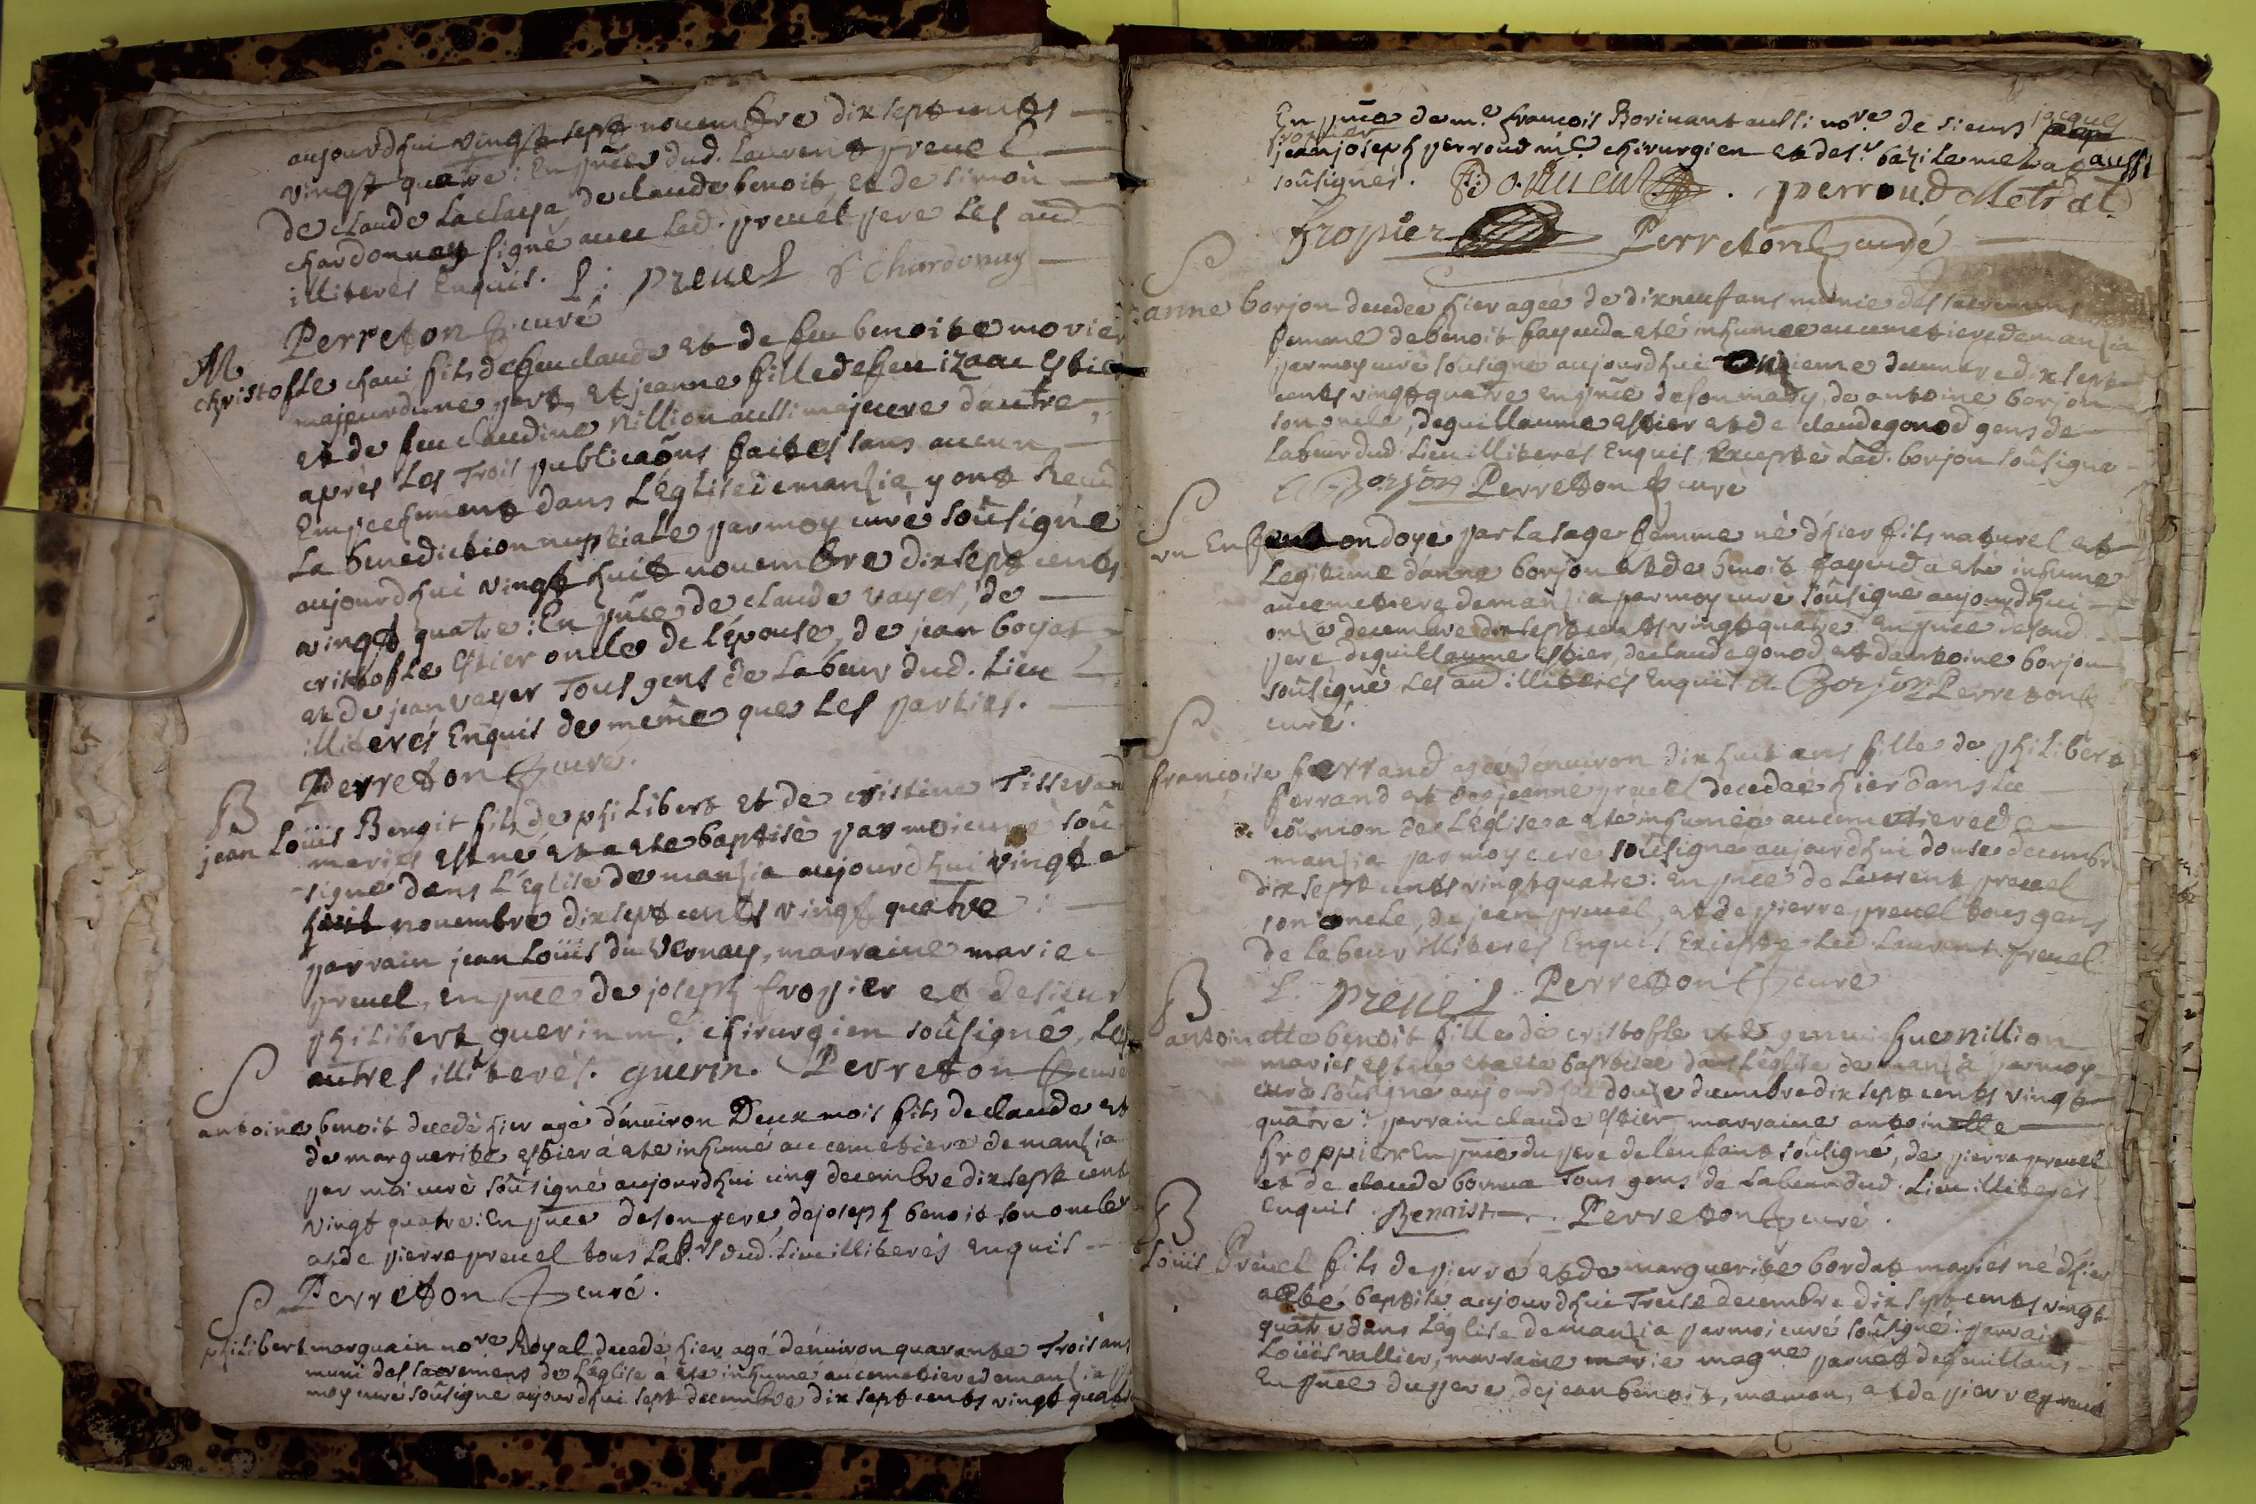 aujourdhui vingt sept novembre dix sept cents
vingt quatre : En pñce dud. Laurent preuel
de claude Laclaya de claude benoit, et de simon
chardonnay signé avec led. preuel pere Les aud
illiterés Enquis. L : preuel S chardonay
Perreton curé
M
christofle chavi fils de feu claude et de feu benoite movier
majeur dune part, et jeanne fille de feu izaac estier
et de feu claudine Nillion aussi majeure d'autre,
après Les Trois publicaõns faites sans aucun
Empechement dans L'Eglise de manzia y ont Receu
La benediction nuptiale par moy curé soûsigné
aujourdhui vingt huit novembre dix sept cents
vingt quatre : En pñce de claude vayer, de
cristofle estier oncle de l'épouse, de jean boyat
et de jean vayer Tous gens de Labeur dud. Lieu
illiterés Enquis de même que Les parties.
Perreton curé.
B
jean Loüis Benoit fils de philibert et de cristine Tisserand
mariés est né et a eté baptisé par moi curé soû
signé dans L'Eglise de manzia aujourdhui vingt
huit novembre dix sept cents vingt quatre :
parrain jean Loüis du Vernay, marraine marie
preuel, en pñce de joseph fropier et de sieur
philibert guerin m.e chirurgien soûsigné, Les
autres illiterés. guerin. Perreton curé
S
antoine benoit decedé hier agé d'environ Deux mois fils de claude et
de marguerite estier à eté inhumé au cemetiere de manzia
par moi curé soûsigné aujourdhui cinq decembre dix sept cents
vingt quatre : En pñce de son pere, de joseph benoit son oncle
et de pierre preuel tous Lab.rs dud. Lieu illiterés Enquis
Perreton curé.
S
philibert marguain no.re Royal decedé hier agé d'environ quarante Trois ans
muni des sacremens de L'Eglise à eté inhumé au cemetiere de manzia p
moy curé soûsigné aujourdhui sept decembre dix sept cents vingt quatre
En pñce de m.e francois Borivant aussi no.re de sieurs jacques
fropier
jean joseph perroud m.e chirurgien et de s.r bazile metrat aussi
soûsignés. Borivent. perroud Metrat
fropier Perreton curé
S
anne borjon decedée hier agée de dix neuf ans munie des sacremens
femme de benoit fayenda eté inhumée au cemetiere de manzia
par moy curé soûsigné aujourdhui onzieme decembre dix sept
cents vingt quatre en pñce de son mary, de antoine borjon
son oncle, de guillaume estier et de claude gonod gens de
Labeur dud. Lieu illiterés Enquis, Excepté Led. borjon soûsigné
A Borjon Perreton curé
S
vn Enfant ondoyé par la sage femme né d'hier fils naturel et
Legitime d'anne borjon et de benoit fayend a eté inhumé
au cemetiere de manzia par moy curé soûsigné aujourdhui
onze decembre dix sept cents vingt quatre En pñce de son d.
pere de guillaume estier, de claude gonod et d'antoine borjon
soûsigné Les aud illiterés Enquis A Borjon Perreton
curé.
S
francoise ferrand agée d'environ dix huit ans fille de philibert
ferrand et de jeanne preuel decedeé hier dans La
coûnion de L'Eglise a eté inhumée au cemetiere de
manzia par moy curé soûsigné aujourdhui douse decembre
dix sept cents vingt quatre : en pñce de Laurent preuel
son oncle, de jean preuel, et de pierre preuel tous gens
de Labeur illiterés Enquis Excepté Led. Laurent preuel
L. preuel Perreton curé
B
antoinette benoit fille de cristofle et de genevieuve Nillion
mariés est née et a eté baptisée dans L'Eglise de manzia par moy
curé soûsigné aujourdhui douze decembre dix sept cents vingt
quatre : parrain claude estier marraine antoinette
froppier En pñce du pere de l'enfant soûsigné, de pierre preuel
et de claude bornua Tous gens de Labeur dud. Lieu illiterés
Enquis. Benoist. Perreton curé.
B
Loüis Preuel fils de pierre et de marguerite bordat mariés né d'hier
a eté baptisé aujourdhui Treise decembre dix sept cents vingt
quatre dans L'eglise de manzia par moi curé soûsigné : parrain
Loüis vallier, marraine marie magne
En pñce du pere, de jean benoit, et de pierre preuel